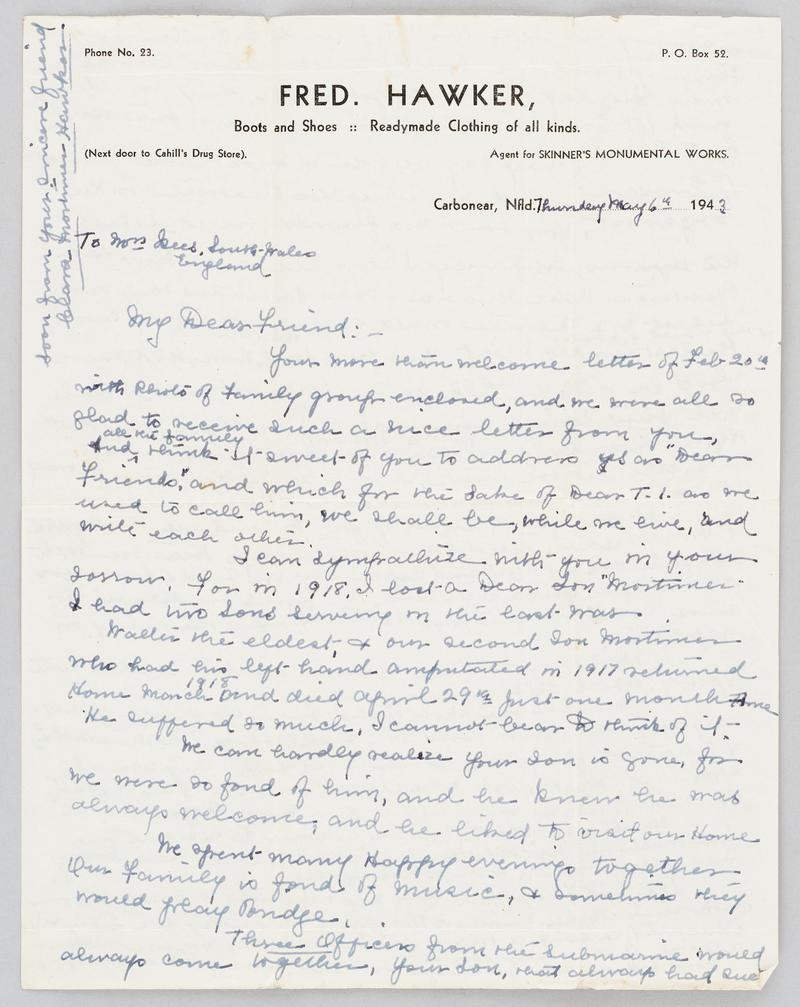 Phone No. 23.
P. O. Box 52.
FRED. HAWKER,
Boots and Shoes :: Readymade Clothing of all kinds.
(Next door to Cahill's Drug Store).
Agent for SKINNER'S MONUMENTAL WORKS.
Carbonear, Nfld. Thursday May 6th 1943
To Mrs Rees, South-Wales
England
My Dear Friend:-
Your more than welcome letter of Feb 20th
with Photo of Family group enclosed, and we were all so
glad to receive such a nice letter from you,
all the family
And think it sweet of you to address us as "Dear
Friends," and which for the sake of Dear T. I. as we
used to call him, we shall be, while we live, and
write each other.
I can sympathize with you in your
sorrow. For in 1918, I lost a Dear Son "Mortimer"
I had two Sons serving in the last war.
Walter the eldest, & our second Son Mortimer
who had his left hand amputated in 1917 returned
1918
Home March and died April 29th just one month Home
He suffered so much, I cannot bear to think of it-
We can hardly realize your Son is gone, for
we were so fond of him, and he knew he was
always welcome, and he liked to visit our Home
We spent many Happy evenings together
Our Family is fond of music, & sometimes they
would play Bridge.
Three Officers from the Submarine would
always come together, your Son, that always had such
soon from your Sincere friend
Clara Mortimer Hawker